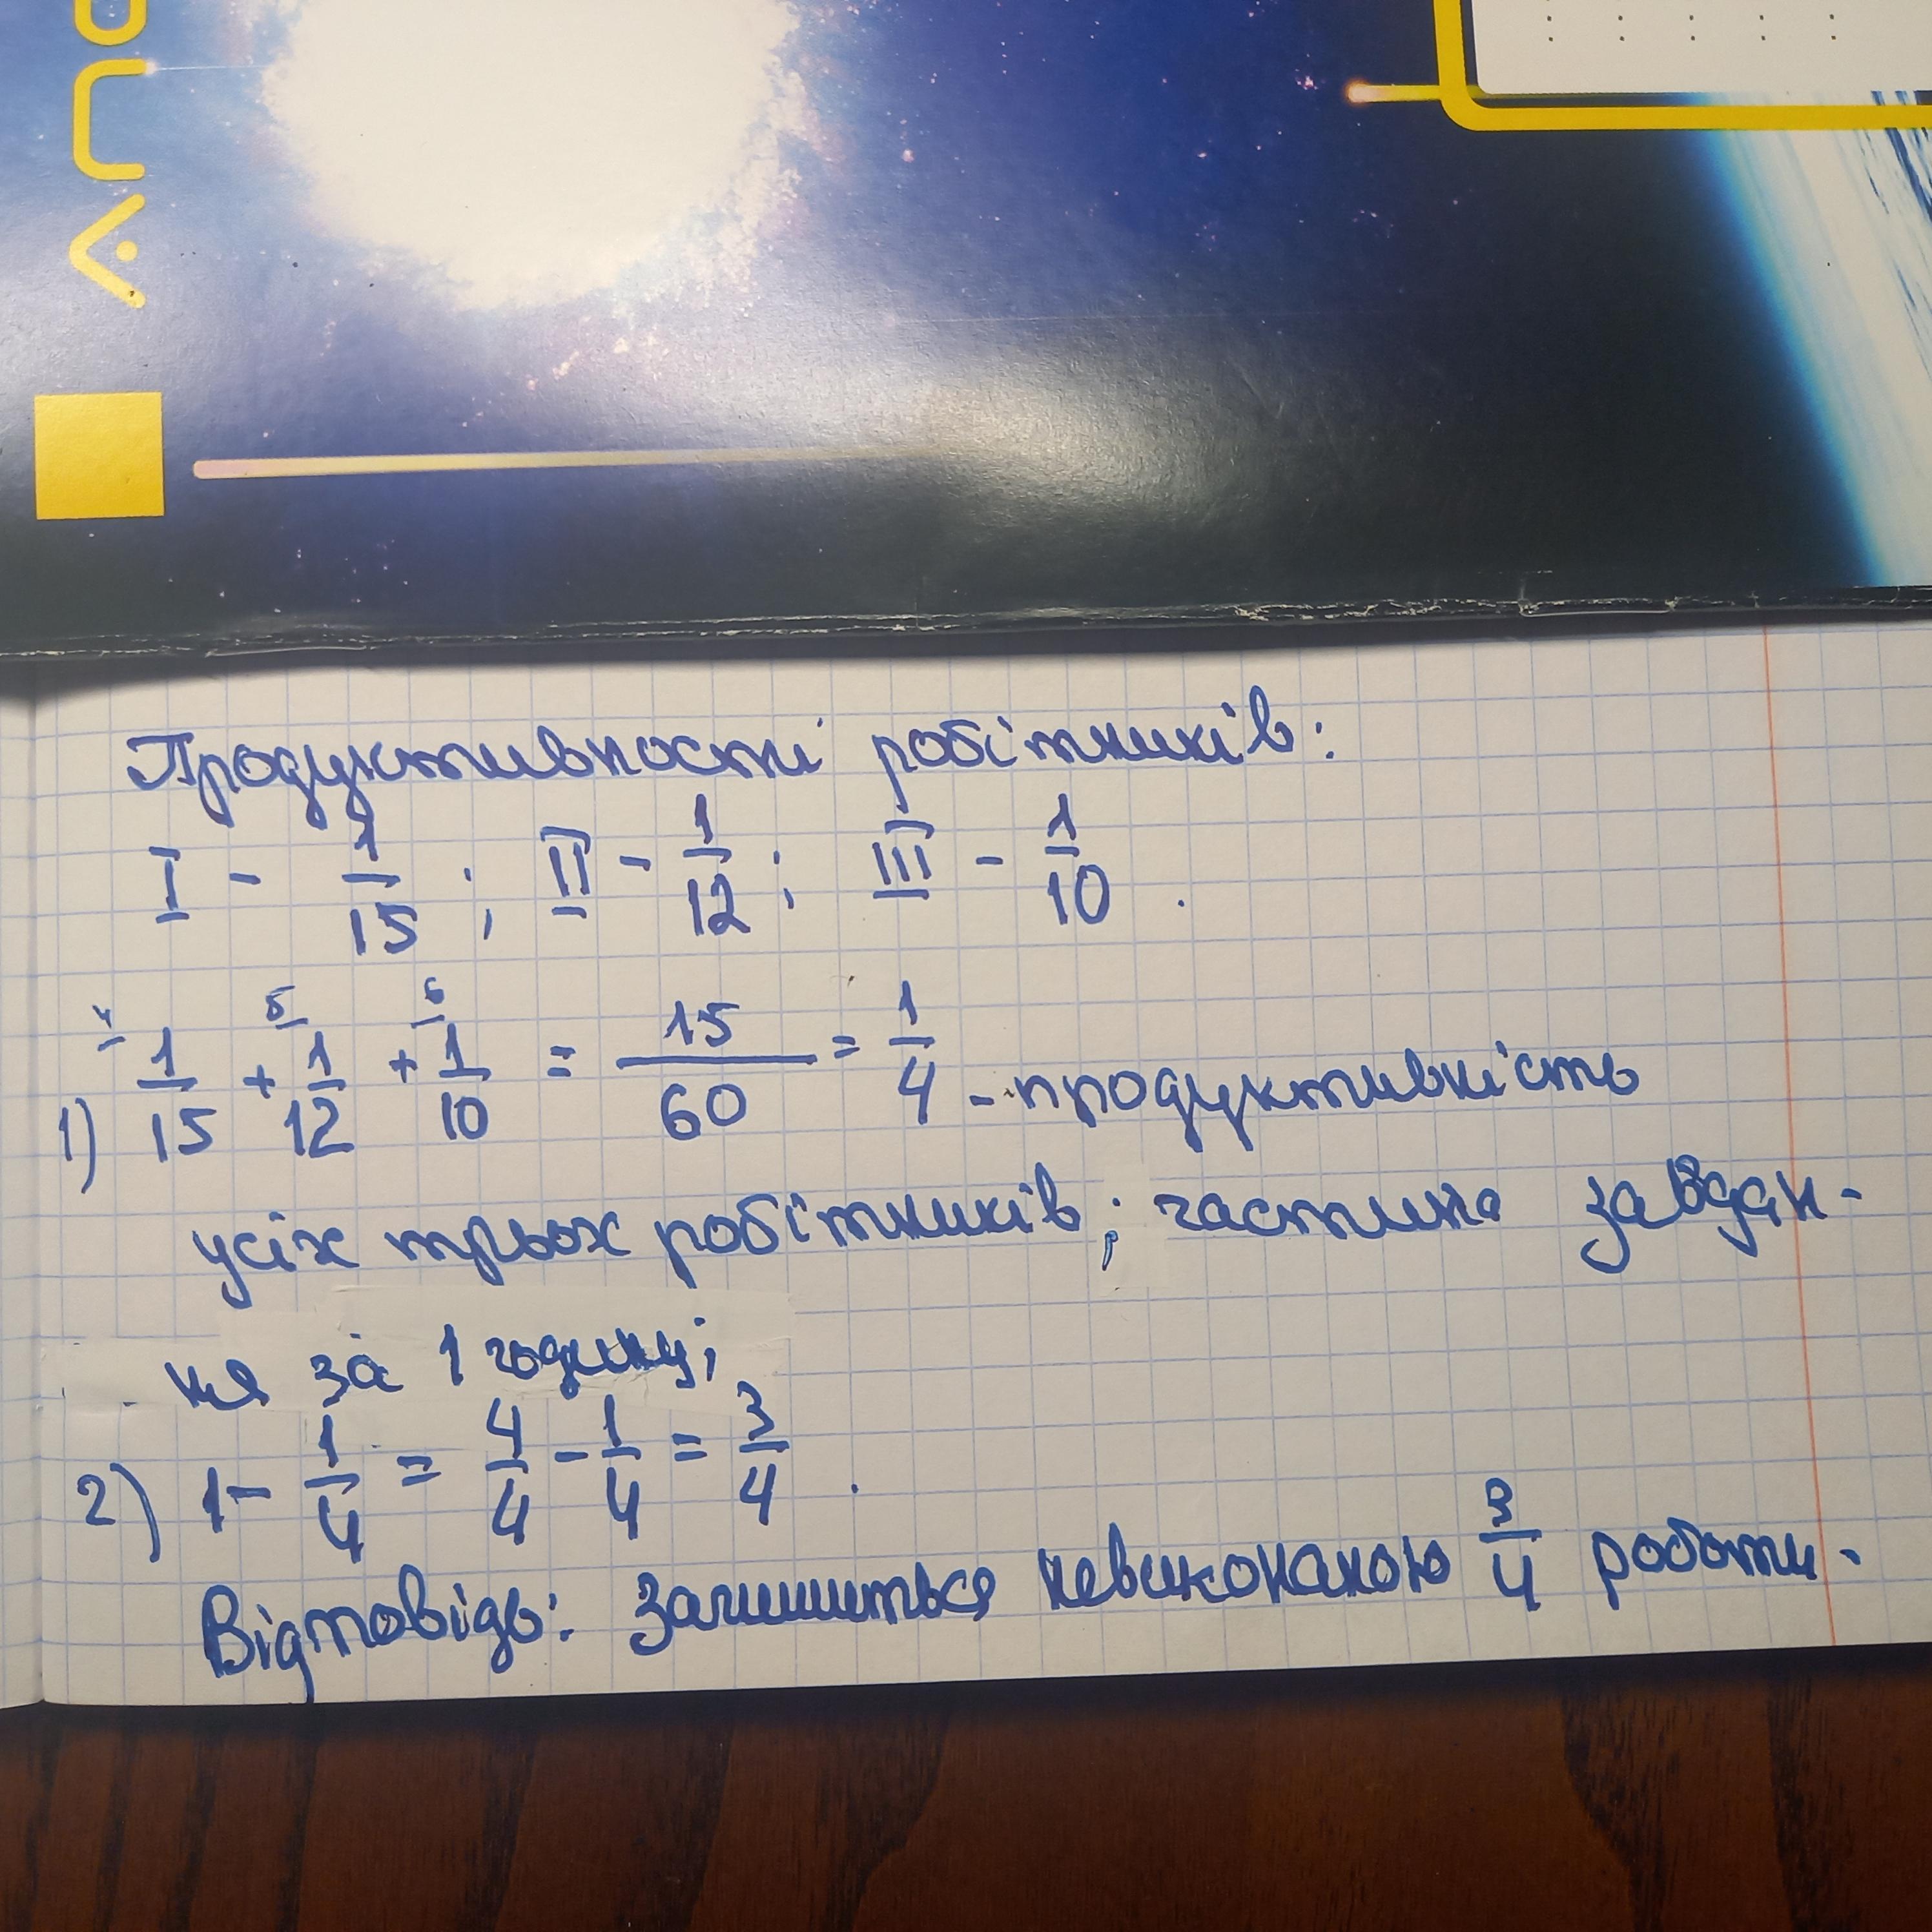 Продуктивності робітників:
I - 1/15 ; II - 1/12 ; III - 1/10 .
4 5 6
1) 1/15 + 1/12 + 1/10 = 15/60 = 1/4 - продуктивність
усіх трьох робітників; частина завдан-
ня за 1 годину;
2) 1 - 1/4 = 4/4 - 1/4 = 3/4 .
Відповідь: залишиться невиконаною 3/4 роботи.